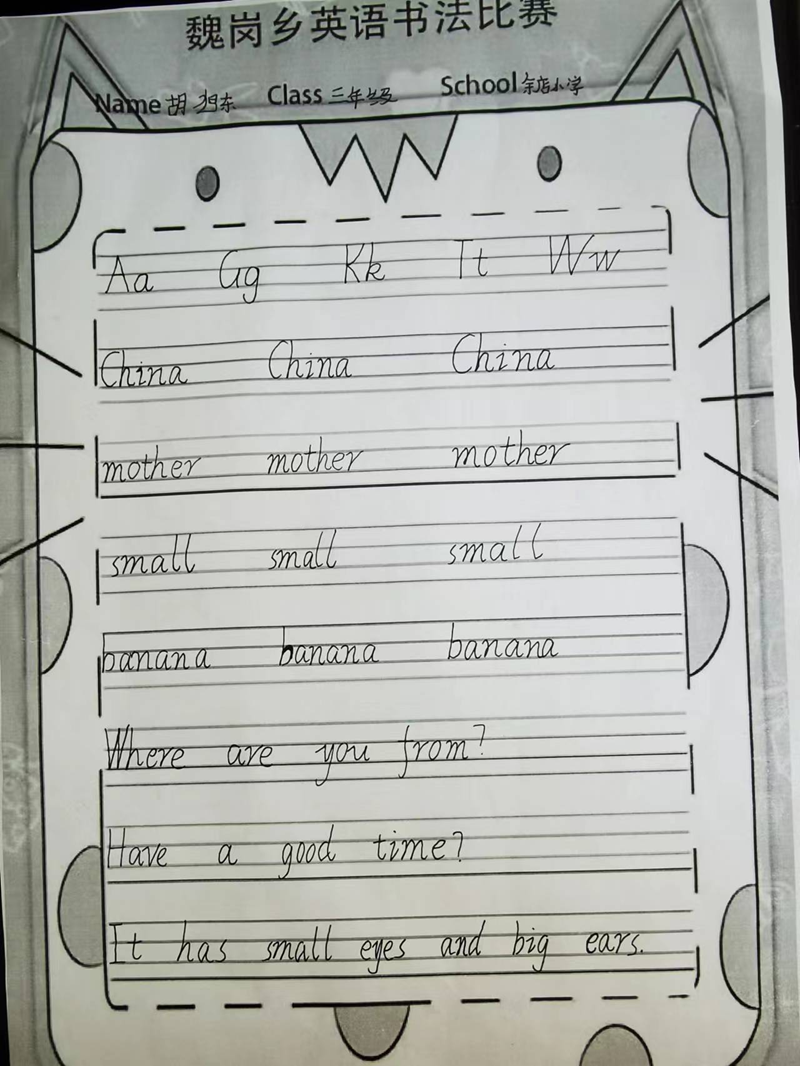 魏岗乡英语书法比赛
Name 胡 东 Class 三年级 School 余店小学
Aa Gg Kk Tt Ww
China China China
mother mother mother
small small small
banana banana banana
Where are you from?
Have a good time?
It has small eyes and big ears.